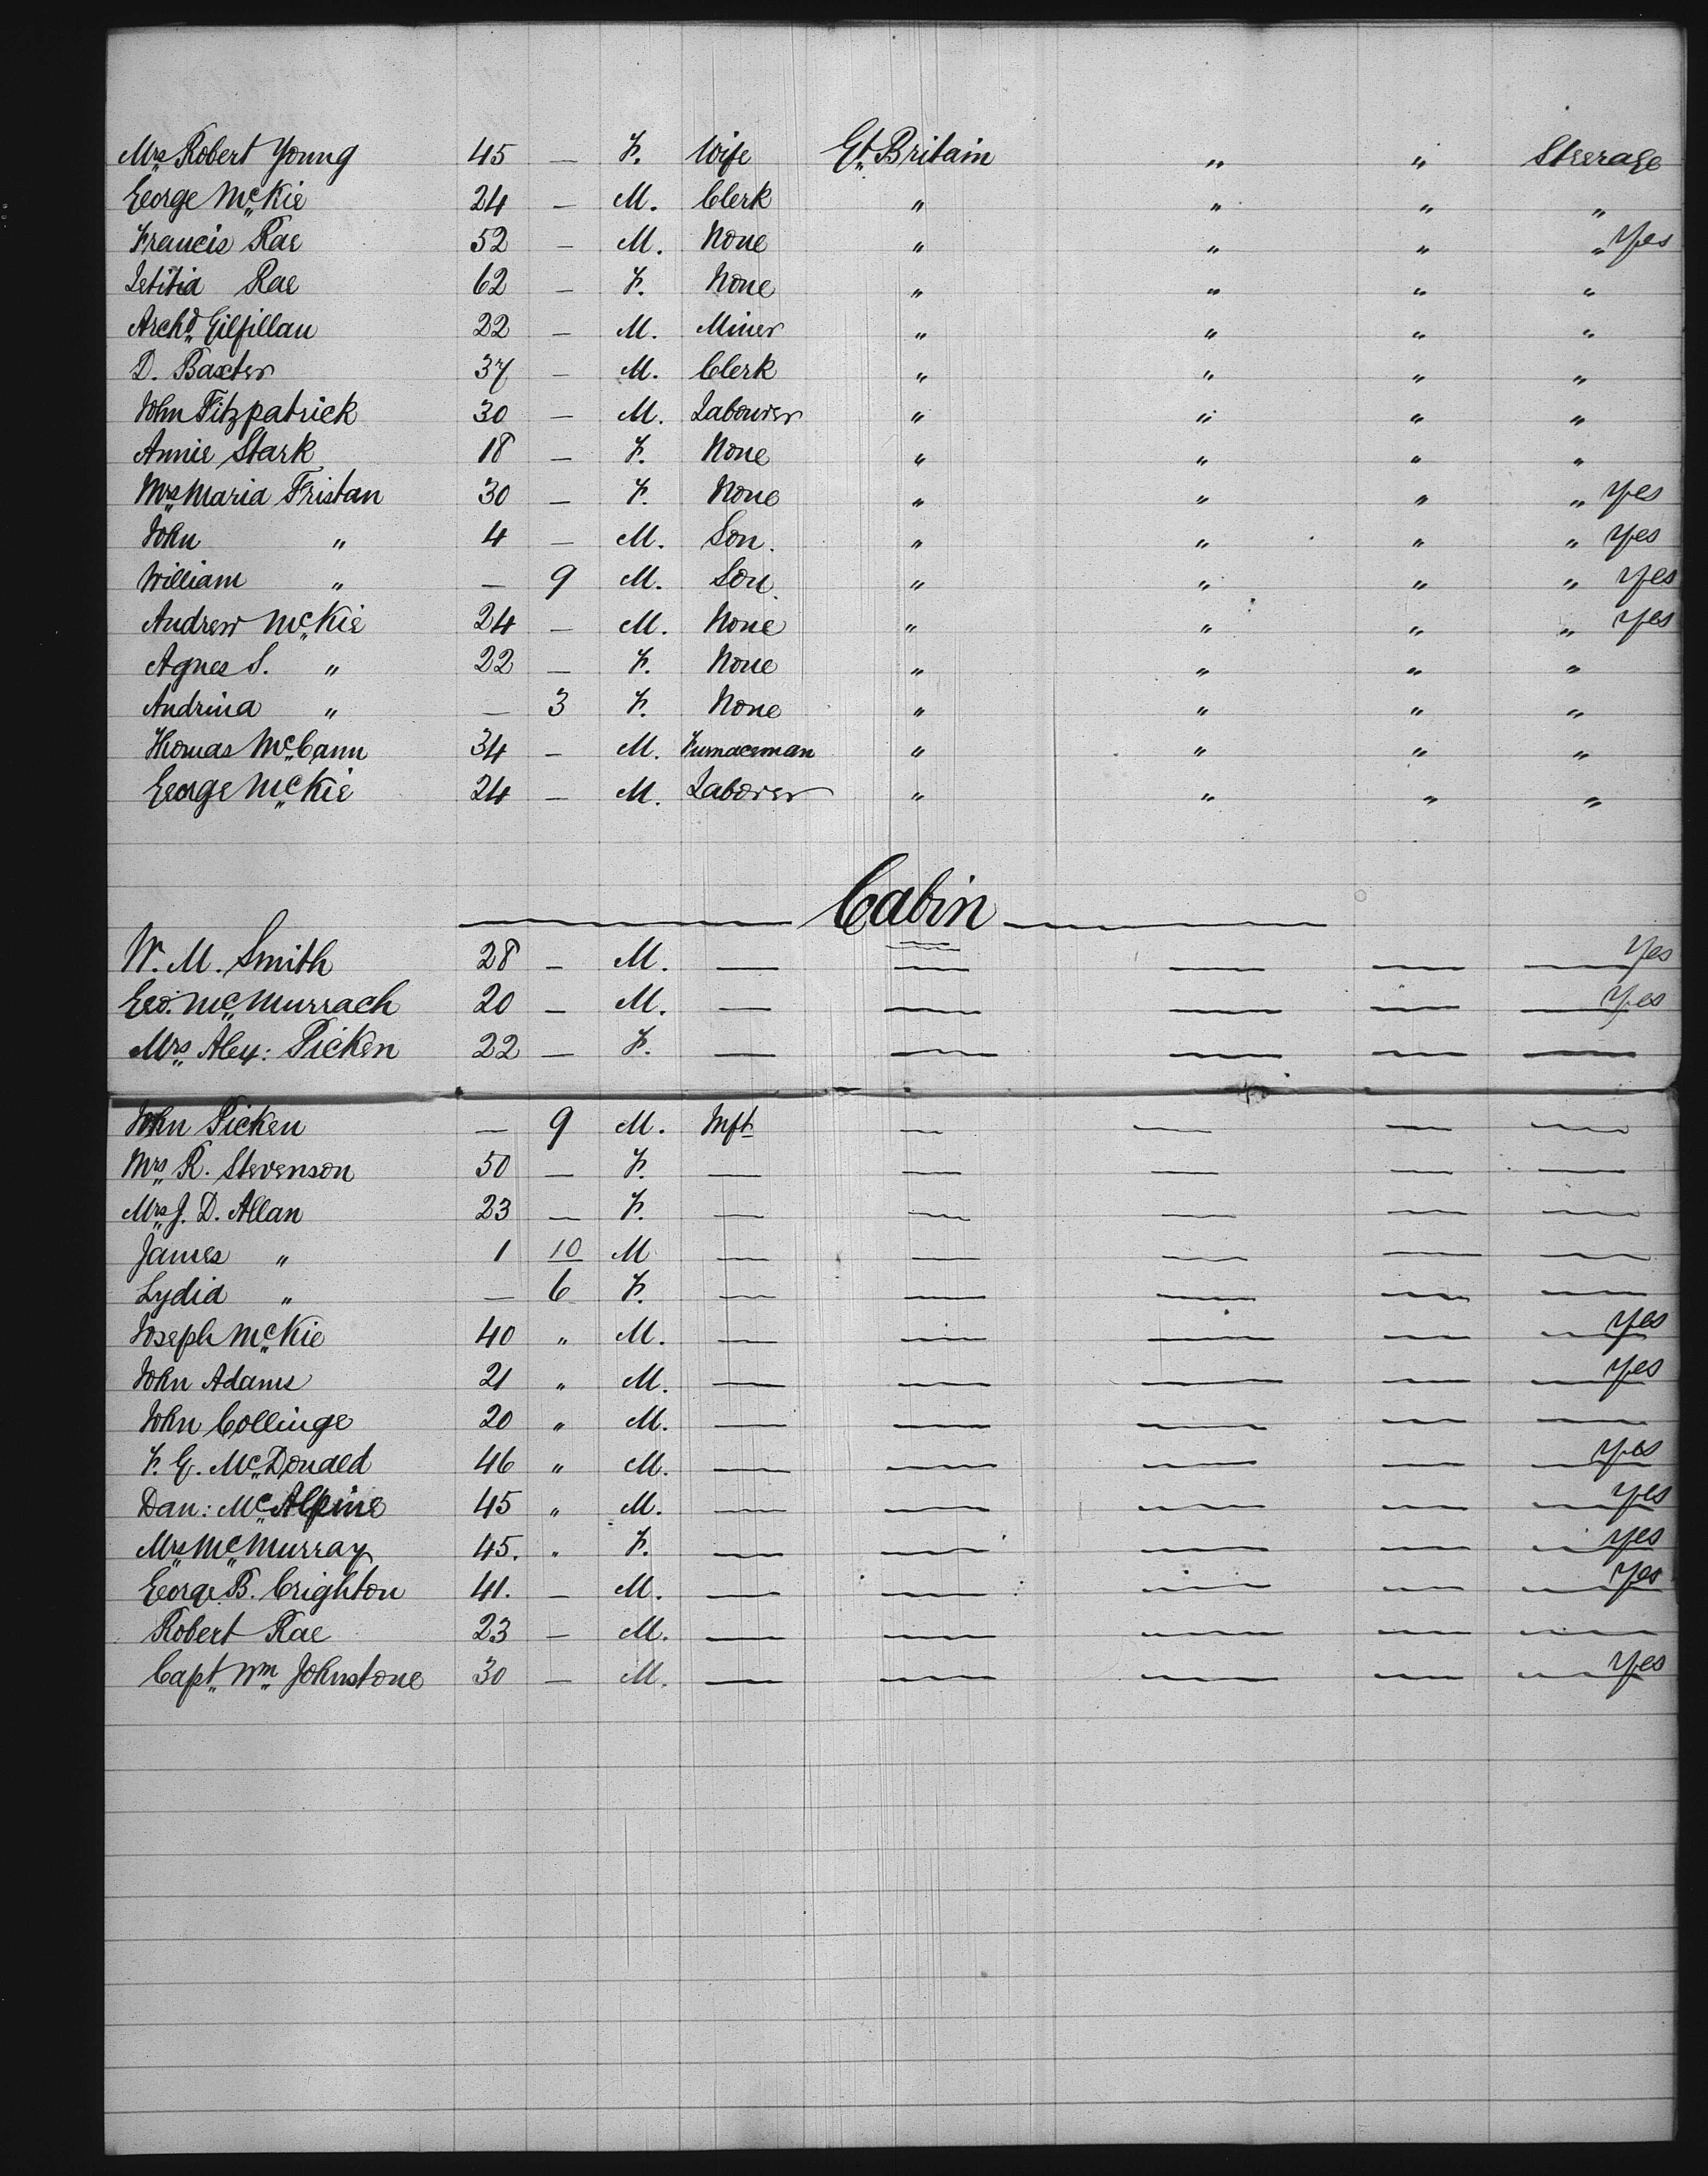 Mrs Robert Young 45 — F. Wife Gt. Britain " " Steerage
George McKie 24 — M. Clerk " " " "
Francis Rae 52 — M. None " " " " Yes
Letitia Rae 62 — F. None " " " "
Archd. Gilfillan 22 — M. Miner " " " "
D. Baxter 37 — M. Clerk " " " "
John Fitzpatrick 30 — M. Labourer " " " "
Annie Stark 18 — F. None " " " "
Mrs Maria Tristan 30 — F. None " " " " Yes
John " 4 — M. Son. " " " " Yes
William " — 9 M. Son. " " " " Yes
Andrew McKie 24 — M. None " " " " Yes
Agnes S. " 22 — F. None " " " "
Andrina " — 3 F. None " " " "
Thomas McCann 34 — M. Furnaceman " " " "
George McKie 24 — M. Laborer " " " "
— Cabin —
W. M. Smith 28 — M. — — — — — Yes
Geo. McMurrach 20 — M. — — — — — Yes
Mrs Alex: Picken 22 — F. — — — — —
John Picken — 9 M. Inft — — — —
Mrs R. Stevenson 50 — F. — — — — —
Mrs J. D. Allan 23 — F. — — — — —
James " 1 10 M — — — — —
Lydia " — 6 F. — — — — —
Joseph McKie 40 " M. — — — — — Yes
John Adams 21 " M. — — — — — Yes
John Collinge 20 " M. — — — — —
F. G. McDonald 46 " M. — — — — — Yes
Dan: McAlpine 45 " M. — — — — — Yes
Mrs McMurray 45. " F. — — — — — Yes
George B. Crighton 41. — M. — — — — — Yes
Robert Rae 23 — M. — — — — —
Capt. Wm Johnstone 30 — M. — — — — — Yes